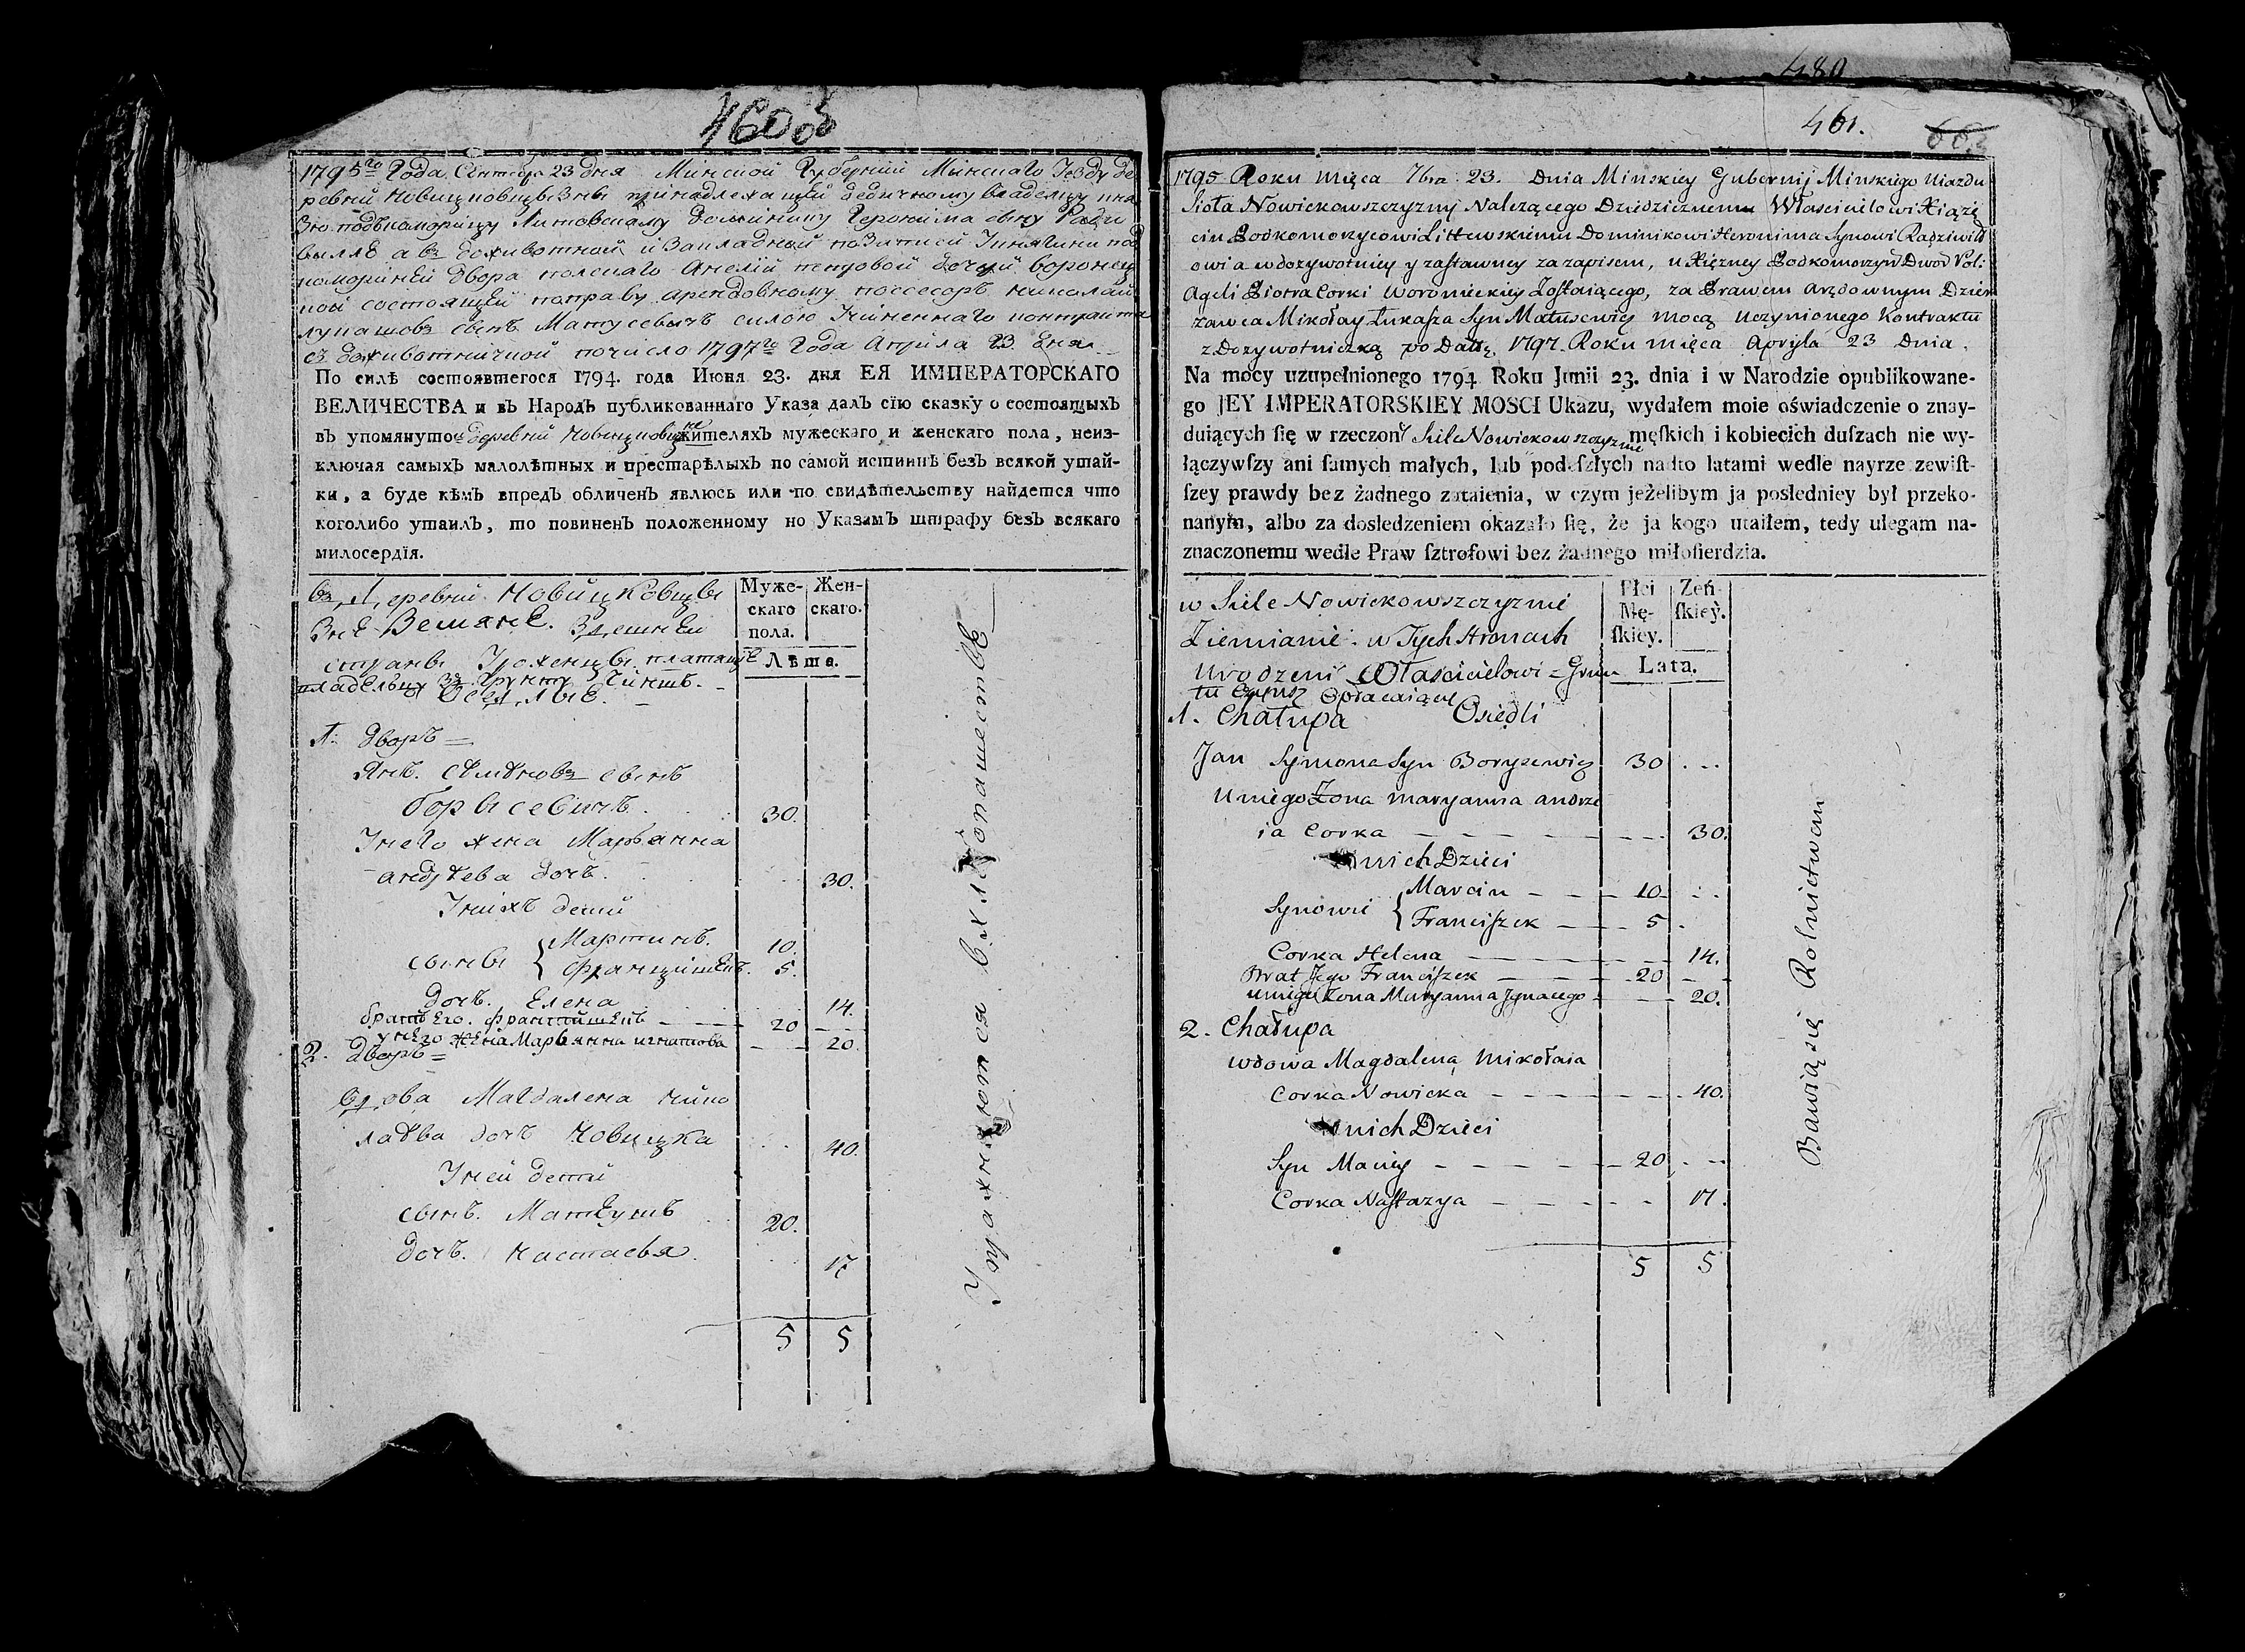 460 об
1795го Года Сентебра 23 дня Минской Губерний Минскаго Уезду де
ревни Новицковщизны принадлежащей дедичному владелцу кня
зю подъкоморицу Литовскому Доминику Геронима сыну Радзи
виллѣ а въ доживотной и закладной по записи Княгини под
комориней двора полскаго Анелии петровой дочки воронец
кой состоящей поправу арендовному поссесоръ Николай
лукашовъ сынъ Матусевичъ силою учиненнаго контракта
съ доживотничкой по число 1797го Года Априла 23 дня
По силѣ состоявшегося 1794. года Июня 23. дня ЕЯ ИМПЕРАТОРСКАГО
ВЕЛИЧЕСТВА и въ Народъ публикованнаго Указа далъ сїю сказку о состоящыхъ
въ упомянутое деревни Новицковщизне жителяхъ мужескаго и женскаго пола, неиз-
ключая самыхъ малолѣтных и престарѣлыхъ по самой истиннѣ безъ всякой утай-
ки, а буде кѣмъ впредъ обличенъ явлюсь или по свидѣтельству найдется что
коголибо утаилъ, то повиненъ положенному по Указамъ штрафу безъ всякаго
милосердїя.
Въ деревни Новицковщы
Зне Земяне. Здешней
страны Уроженцы платящѣ
владельцу За Грунту Чиншъ.
Оседлые.
Муже-
скаго
пола.
Жен-
скаго.
Лѣта.
1. дворъ
Янъ. Сѣмѣновъ сынъ
борысевичъ 30.
Унего жена Марьянна
андрѣева дочъ. 30.
Унихъ дети
сыны { Мартинъ. 10.
францишекъ. 5.
дочъ. Елена 14.
братъ Его. францишекъ 20
унего жена Марьянна игнатова 20.
2. дворъ
Вдова Магдалена Нико
лаѣва дочъ Новицка 40.
Уней дети
сынъ. Матеушъ 20.
дочъ. Настасья 17
5 5
Упражняются въ хлѣбопашествѣ
480
461.
1795 Roku Mięca 7bra 23. Dnia Minskiey Gubernij Minskiego Uiazdu
Sioła Nowickowszczyzny Należącego Dziedzicznemu Własicielowi Xiążę
ciu Podkomorzycowi Littewskiemu Dominikowi Heronima Synowi Radziwiłł
owi a w dozywotniey y zastawney za zapisem, u Xiężney Podkomorzyń Dwor Pol:
Ageli Piotra Corki Woronieckiey Zostaiącego, za Prawem Arędownym Dzier
zawca Mikołay Łukasza Syn Matusewicz mocą Uczynionego Kontraktu
z Dozywotniczką po Datę 1797. Roku Mięca Apryla 23 Dnia.
Na mocy uzupełnionego 1794 Roku Junii 23. dnia i w Narodzie opublikowane-
go JEY IMPERATORSKIEY MOSCI Ukazu, wydałem moie oświadczenie o znay-
duiących ſię w rzeczony Siele Nowickowszczyznie męſkich i kobiecich duſzach nie wy-
łączywſzy ani ſamych małych, lub podeſzłych nadto latami wedle nayrzezewiſt-
ſzey prawdy bez żadnego zataienia, w czym jeżelibym ja poslednicy był przeko-
nanym, albo za dosledzeniem okazało ſię, że ja kogo utaiłem, tedy ulegam na-
znaczonemu wedle Praw ſztrofowi bez żadnego miłoſierdzia.
w Siele Nowickowszczyznie
Ziemianie w Tych Stronach
Urodzeni Własicielowi Grun
tu Czynsz Opłacaiące
Płci
Mę-
ſkiey.
Żeń-
ſkiey.
Lata.
1. Chałupa Osiedli
Jan Symona Syn Borysewicz 30
U niego Żona Maryanna Andrze
ia Corka 30.
u nich Dzieci
Synowie { Marcin 10.
Franciszek 5
Corka Helena 14.
Brat Jego Franciszek 20
u niego Żona Maryanna Jgnacego 20.
2. Chałupa
Wdowa Magdalena Mikołaia
Corka Nowicka 40.
u nich Dzieci
Syn Maciey 20
Corka Nastazya 17.
5 5
Bawią się Rolnictwem